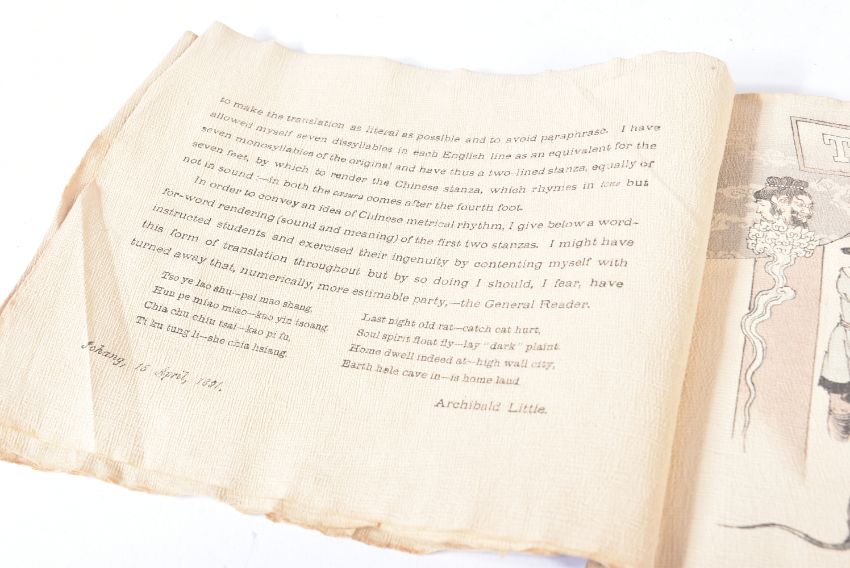 to make the translation as literal as possible and to avoid paraphrase. I have
allowed myself seven dissyllables in each English line as an equivalent for the
seven monosyllables of the original and have thus a two-lined stanza, equally of
seven feet, by which to render the Chinese stanza, which rhymes in tone but
not in sound :—in both the cæsura comes after the fourth foot.
In order to convey an idea of Chinese metrical rhythm, I give below a word-
for-word rendering (sound and meaning) of the first two stanzas. I might have
instructed students and exercised their ingenuity by contenting myself with
this form of translation throughout but by so doing I should, I fear, have
turned away that, numerically, more estimable party,—the General Reader.
Tso ye lao shu—pei mao shang,
Hun pe miao miao—kao yin tsoang.
Chia chu chiu tsai—kao pi fu,
Ti ku tung li—she chia hsiang.
Last night old rat—catch cat hurt,
Soul spirit float fly—lay "dark" plaint.
Home dwell indeed at—high wall city,
Earth hole cave in—is home land.
Ichang, 15 April, 1891.
Archibald Little.
T